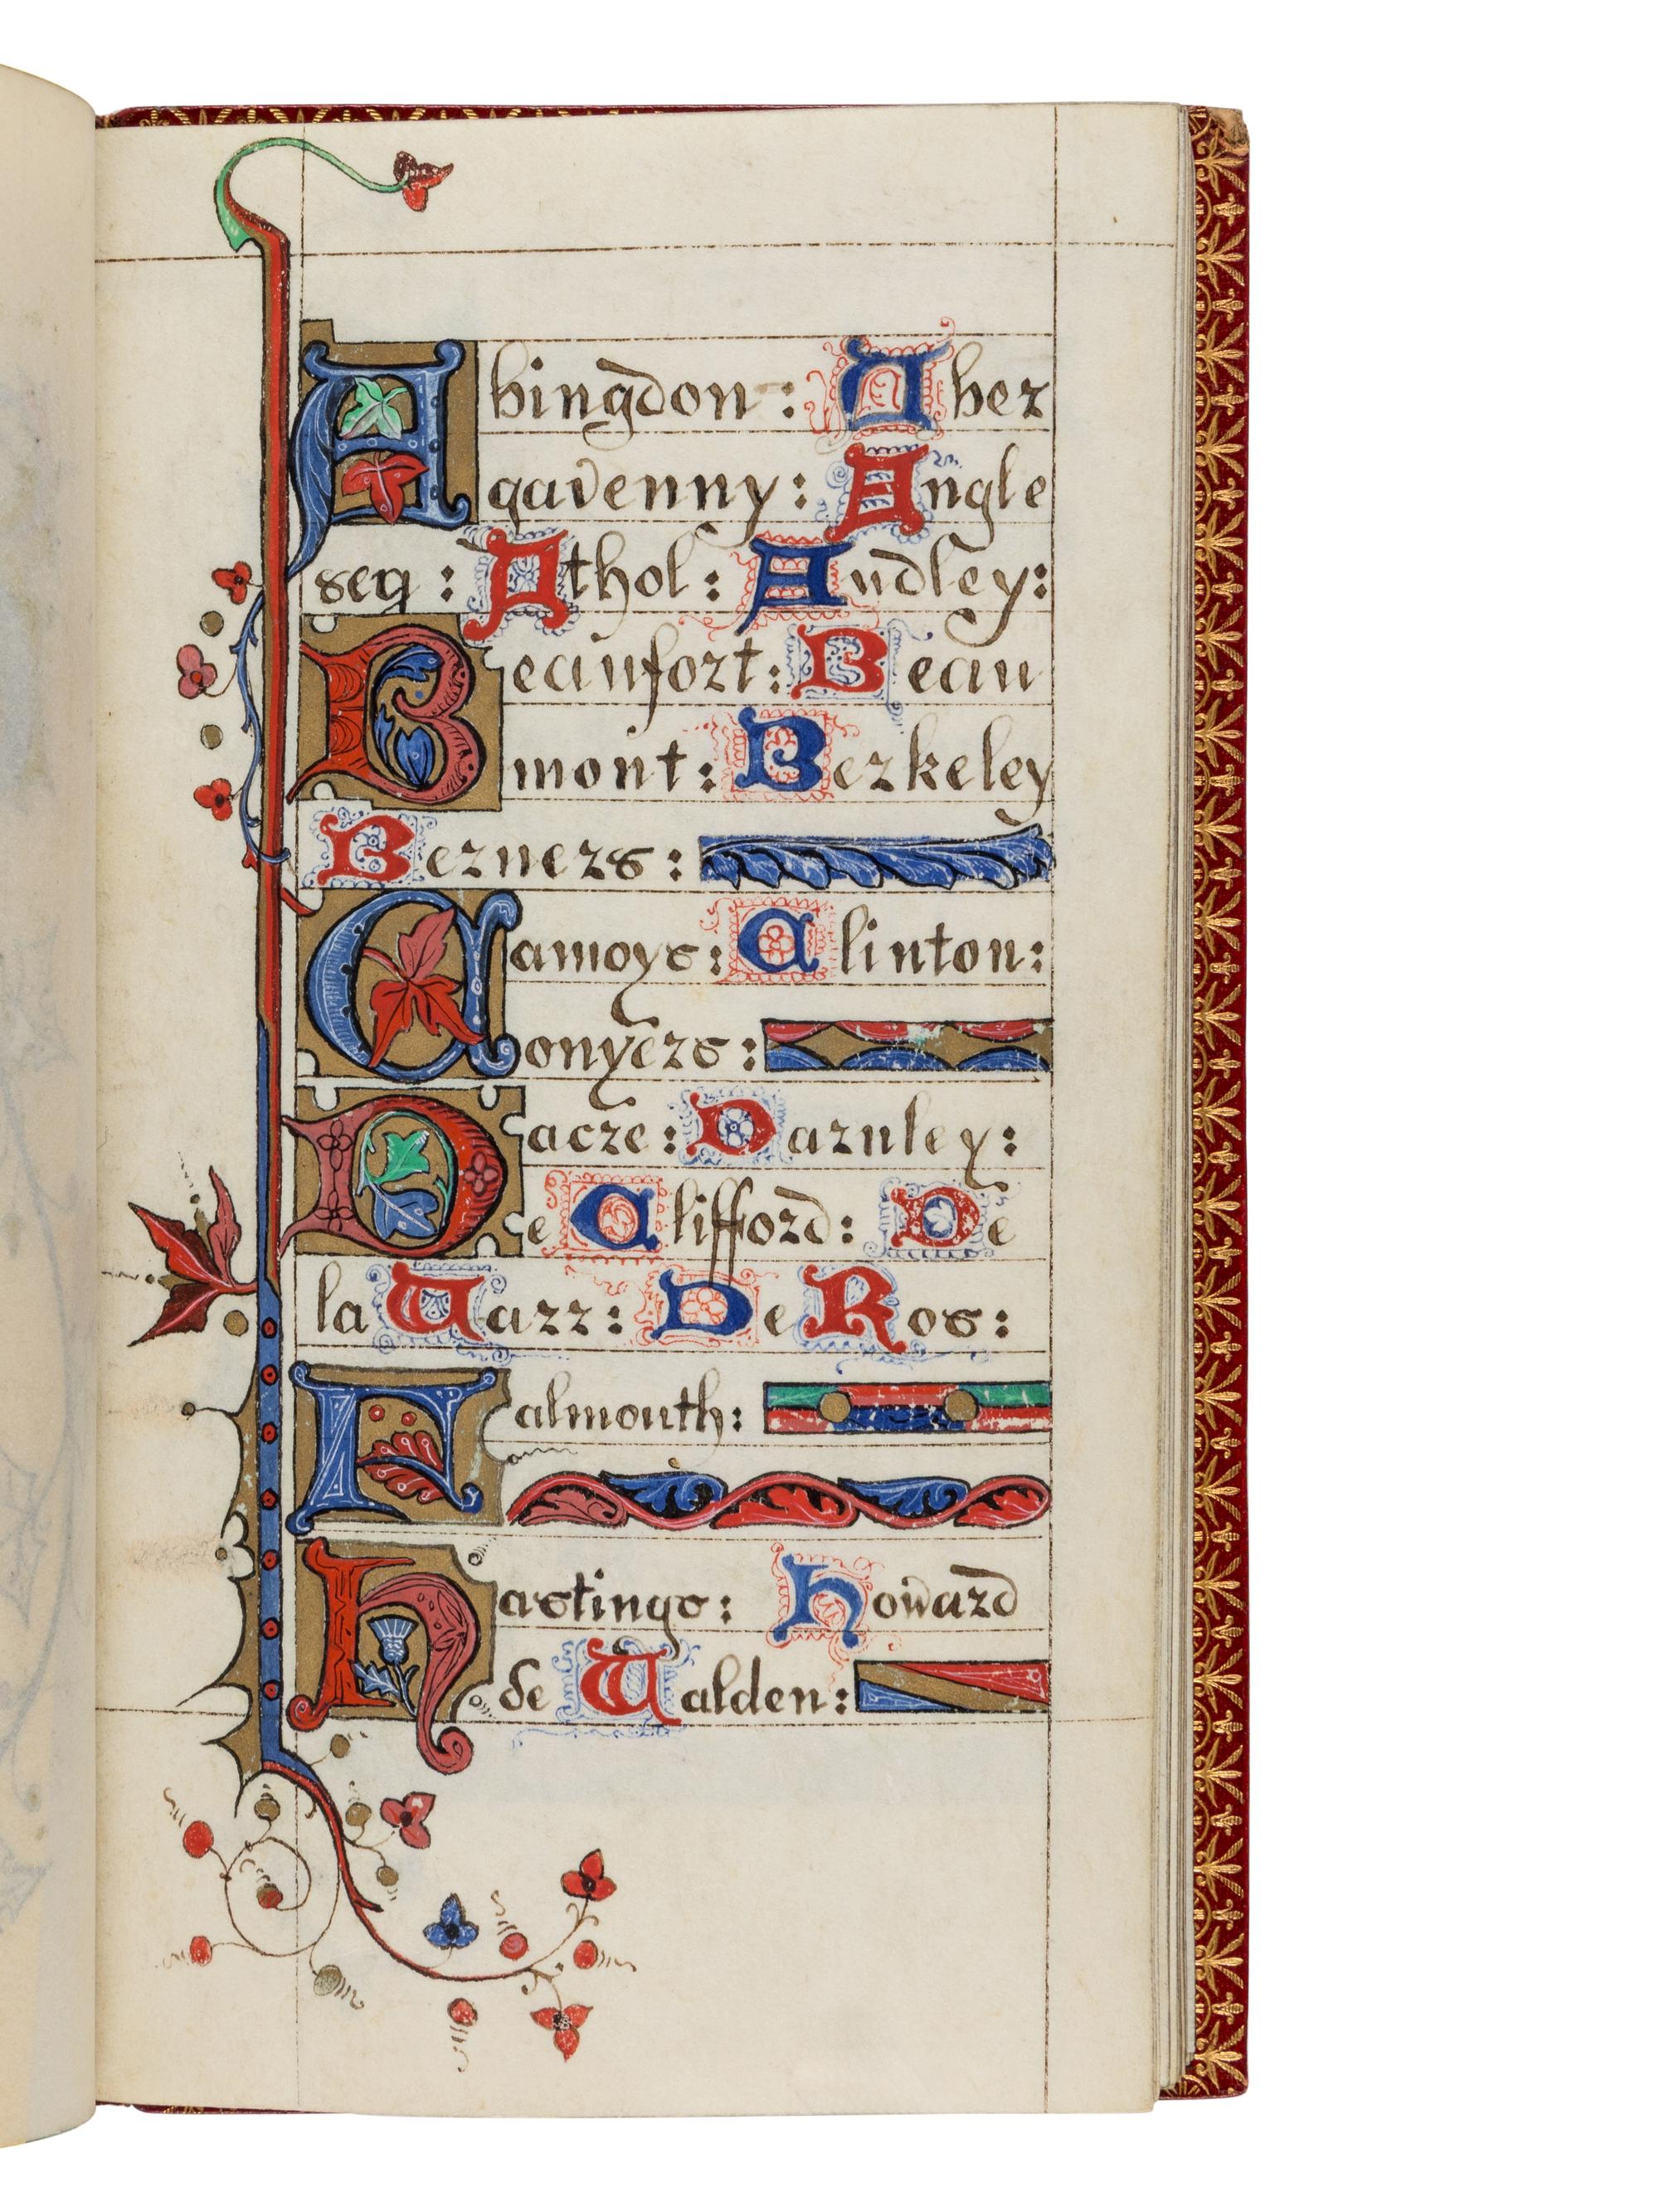 Abingdon: Aber
gavenny: Angle
sey: Athol: Audley:
Beaufort: Beau
mont: Berkeley
Berners:
Camoys: Clinton:
Conyers:
Dacre: Darnley:
De Clifford: De
la Warr: De Ros:
Falmouth:
Hastings: Howard
de Walden: